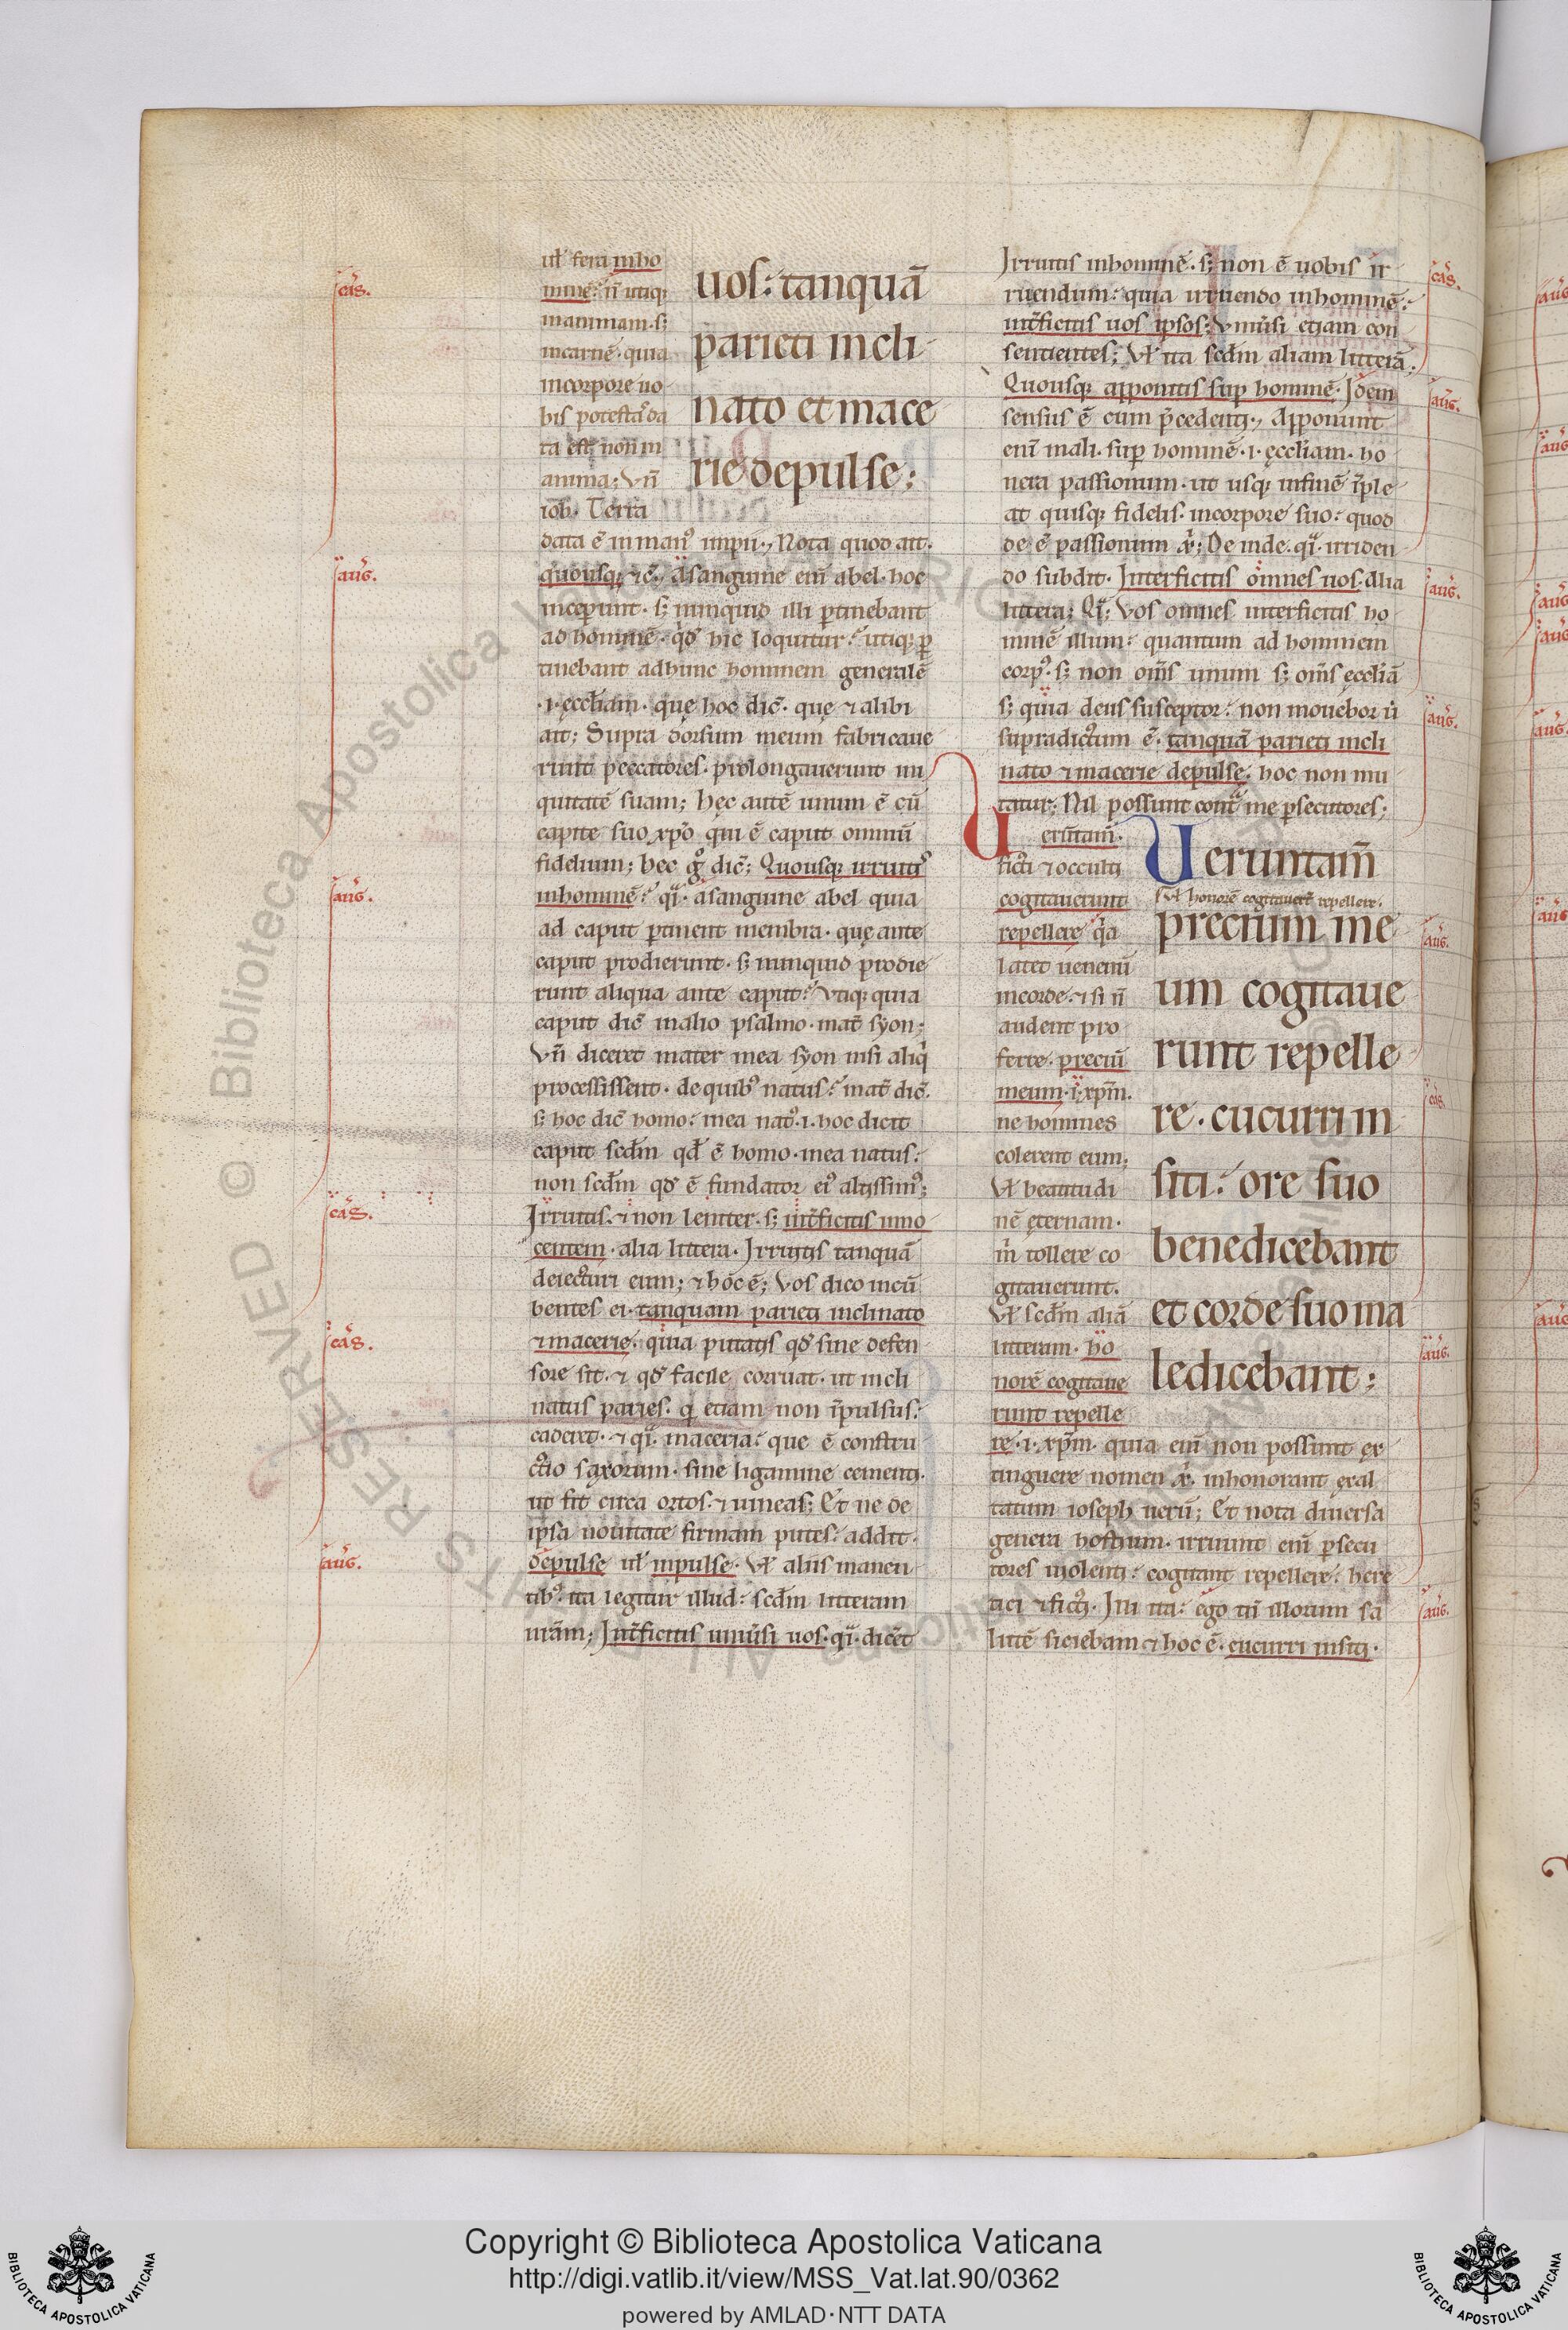 ul' fera inho
minē? ñ utiq;
inanimam· s;
incarnē· quia
incorpore uo
bis potestas da
ta est; non in
anima; Vñ
iob· Terra
uos: tanquā
parieti incli
nato et mace
rie depulse:
data ē in man' impii·, Nota quod ait·
quousq; &c̄·, asanguine eni abel· hoc
inceperunt· s; nunquid illi ptinebant
ad hominē· qđ hic loquitur? utiq; p
tinebant adhunc hominem generalē
·i· ęccliam· quę hoc dic̄· quę & alibi
ait; Supra dorsum meum fabricaue
runt peccatores· prolongauerunt ini
quitatē suam; Hęc autē unum ē cū
capite suo xpo qui ē caput omniū
fidelium; hec g° dic̄; Quousq; irruitis
inhominē? q͛i· asanguine abel quia
ad caput ptinent membra· quę ante
caput prodierunt· s; nunquid prodie
runt aliqua ante caput? Vtiq; quia
caput dic̄ inalio psalmo· mat̄ syon;
Vñ diceret mater mea syon nisi aliq
processissent· de quib' natus? mat̄ dic̄·
s; hoc dic̄ homo: mea nat'·i· hoc dicit
caput scdm qđ ē homo· mea natus:
non scdm qđ ē fundator ei' altissim';
Irruitis· & non leniter· s; int̄ficitis inno
centem· alia littera· Irruitis tanquā
deiecturi eum; & hoc ē; Vos dico incū
bentes ei· tanquam parieti inclinato
& macerie· quia putatis qđ sine defen
sore sit· & qđ facile corruat· ut incli
natus paries· q etiam non īpulsus:
caderet· & q͛i· maceria: que ē constru
ctio saxorum· sine ligamine cementi·
ut fit circa ortos· & uineas; Et ne de
ipsa nouitate firmam putes: addit·
depulse ul' inpulse· Vl' aliis manen
tib' ita legitur illud: scdm litteram
nram; Int̄ficitis uniusi uos· q͛i· dicet
Irruitis inhominē· s; non ē uobis ir
ruendum: quia irruendo inhominē:
int̄ficitis uos ipsos; Vniusi etiam con
sentientes; Vl' ita scdm aliam litterā;
Quousq; apponitis sup hominē· Idem
sensus ē cum p̄cedenti·, Apponunt
eni mali· sup hominē·i· ęccliam· ho
nera passionum· ut usq; infinē īple
at quisq; fidelis· incorpore suo: quod
de ē passionum x͛; Deinde· q͛i· irriden
do subdit· Interficitis omnes uos· Alia
littera; Q͛i; Vos omnes interficitis ho
minē illum: quantum ad hominem
corp'· s; non oms unum s; oms ęccliā
s; quia deus susceptor: non mouebor ū
supradictum ē· tanquā parieti incli
nato & macerie depulsę· hoc non mu
tatur; Nil possunt cont̄ me psecutores;
Ueruntam̄·
ficti & occulti
cogitauerunt
repellere q̄a
latet uenenū
incorde· & si ñ
audent pro
ferre· preciū
meum·i· xpm̄·
ne homines
colerent eum;
Vl' beatitudi
nē ęternam·
m͛ tollere co
gitauerunt·
Vl' scdm aliā
litteram· ho
norē cogitaue
runt repelle
Ueruntam̄
ſ ul' honorē cogitauer̄ repellere·
precium me
um cogitaue
runt repelle
re· cucurri in
siti: ore suo
benedicebant
et corde suo ma
ledicebant;
re·i· xpm̄· quia eni non possunt ex
tinguere nomen x͛· inhonorant exal
tatum ioseph uerū; Et nota diuersa
genera hostium· irruunt eni psecu
tores uiolenti: cogitant repellere: here
tici & ficti· Illi ita: ego tn̄ illorum sa
lutē siciebam & hoc ē· cucurri insiti·
cas̄·
auḡ·
auḡ·
cas̄·
cas̄·
auḡ·
cas̄·
auḡ·
auḡ·
auḡ·
auḡ·
cas̄·
auḡ·
auḡ·
© Biblioteca Apostolica Vaticana
ALL RIGHTS RESERVED
Copyright © Biblioteca Apostolica Vaticana
http://digi.vatlib.it/view/MSS_Vat.lat.90/0362
powered by AMLAD·NTT DATA
BIBLIOTECA APOSTOLICA VATICANA
BIBLIOTECA APOSTOLICA VATICANA